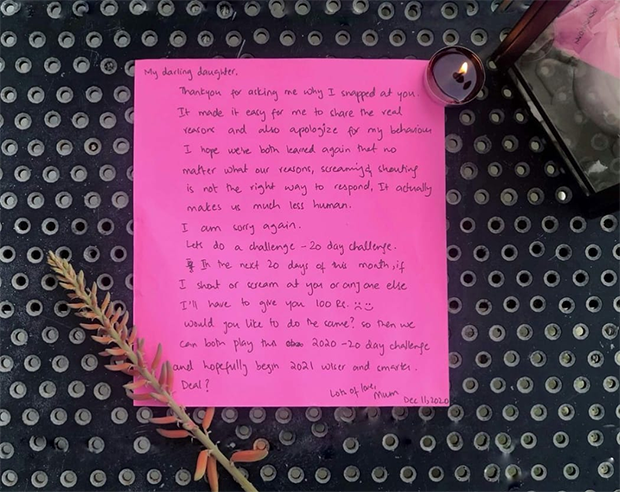 My darling daughter,
Thankyou for asking me why I snapped at you.
It made it easy for me to share the real
reasons and also apologize for my behaviour
I hope we've both learned again that no
matter what our reasons, screaming & shouting
is not the right way to respond. It actually
makes us much less human.
I am sorry again.
Lets do a challenge - 20 day challenge.
In the next 20 days of this month, if
I shout or scream at you or anyone else
I'll have to give you 100 Rs. ☹☺
Would you like to do the same? So then we
can both play this 2020 - 20 day challenge
and hopefully begin 2021 wiser and smarter.
Deal?
Lots of love,
Mum
Dec 11, 2020